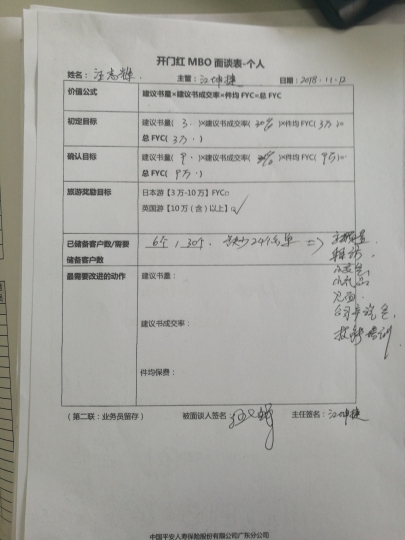 开门红 MBO 面谈表-个人
姓名： 主管：江坤捷 日期：2018.11.12
价值公式 建议书量×建议书成交率×件均 FYC=总 FYC
初定目标 建议书量( 3. )×建议书成交率( 30% )×件均 FYC( 3万 )=
总 FYC( 3万. )
确认目标 建议书量( 9. )×建议书成交率( )×件均 FYC( 9万 )=
总 FYC( 9万. )
旅游奖励目标 日本游【3 万-10 万】FYC□
英国游【10 万（含）以上】□✓
已储备客户数/需要
储备客户数
6个 / 30个. 24个名单 =>
最需要改进的动作 建议书量：
小礼品
见面
培训
建议书成交率：
件均保费：
（第二联：业务员留存） 被面谈人签名： 主任签名：江坤捷
中国平安人寿保险股份有限公司广东分公司